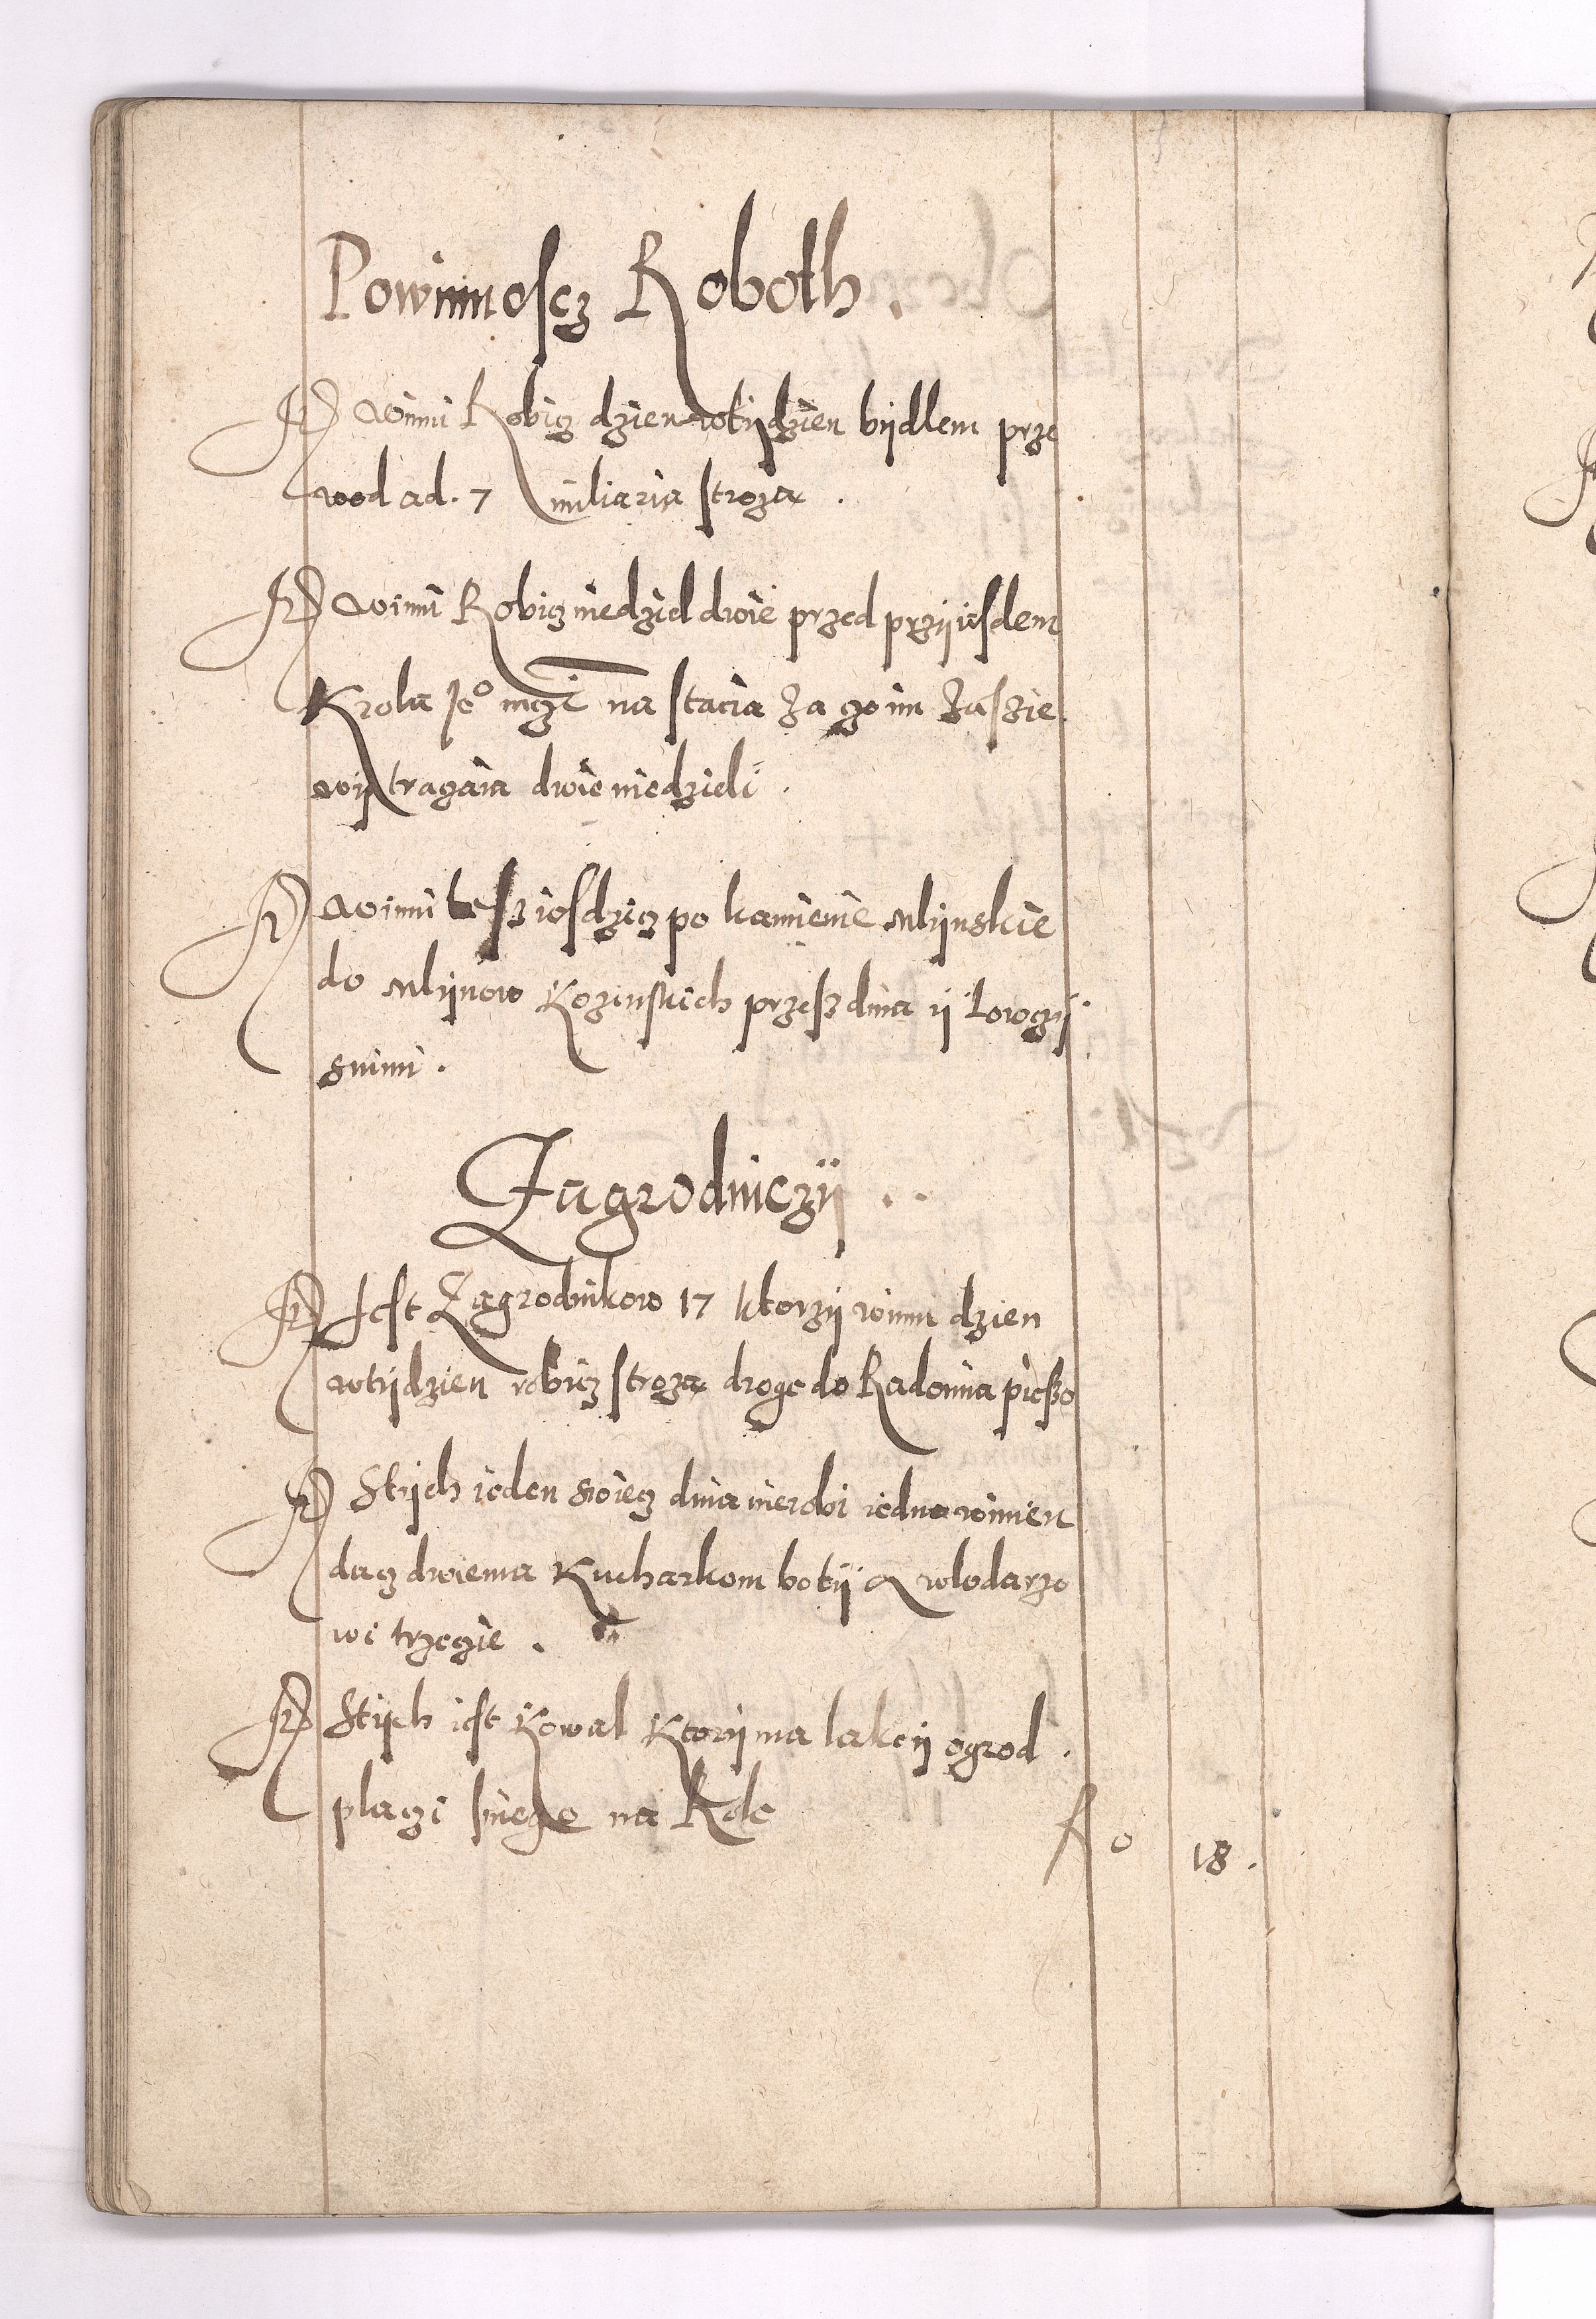 Powinnoscz Roboth.
winni Robicz dzien wtijdzien bijdlem prze
wod ad. 7 miliaria stroza.
winni Robicz niedziel dwie przed przijiesdem
Krola Jeº mczi na stacia za go im zaszie
wijtragaia dwie niedzieli.
winni tesz iesdzicz po kamienie mlijnskie
do mlijnow Kozinskich przesz dnia ij Lowczij
snimi.
Zagrodniczij..
Jest Zagrodnikow 17 ktorzij winni dzien
wtijdzien robicz stroza droge do Radomia pieszo
Stijch ieden swiecz dnia nierobi iedno winien
dacz dwiema Kucharkom botij a wlodarzo
wi trzeczie.
Stijch iest Kowal Ktorij ma lake ij ogrod.
placzi snego na Role
f 0 18.